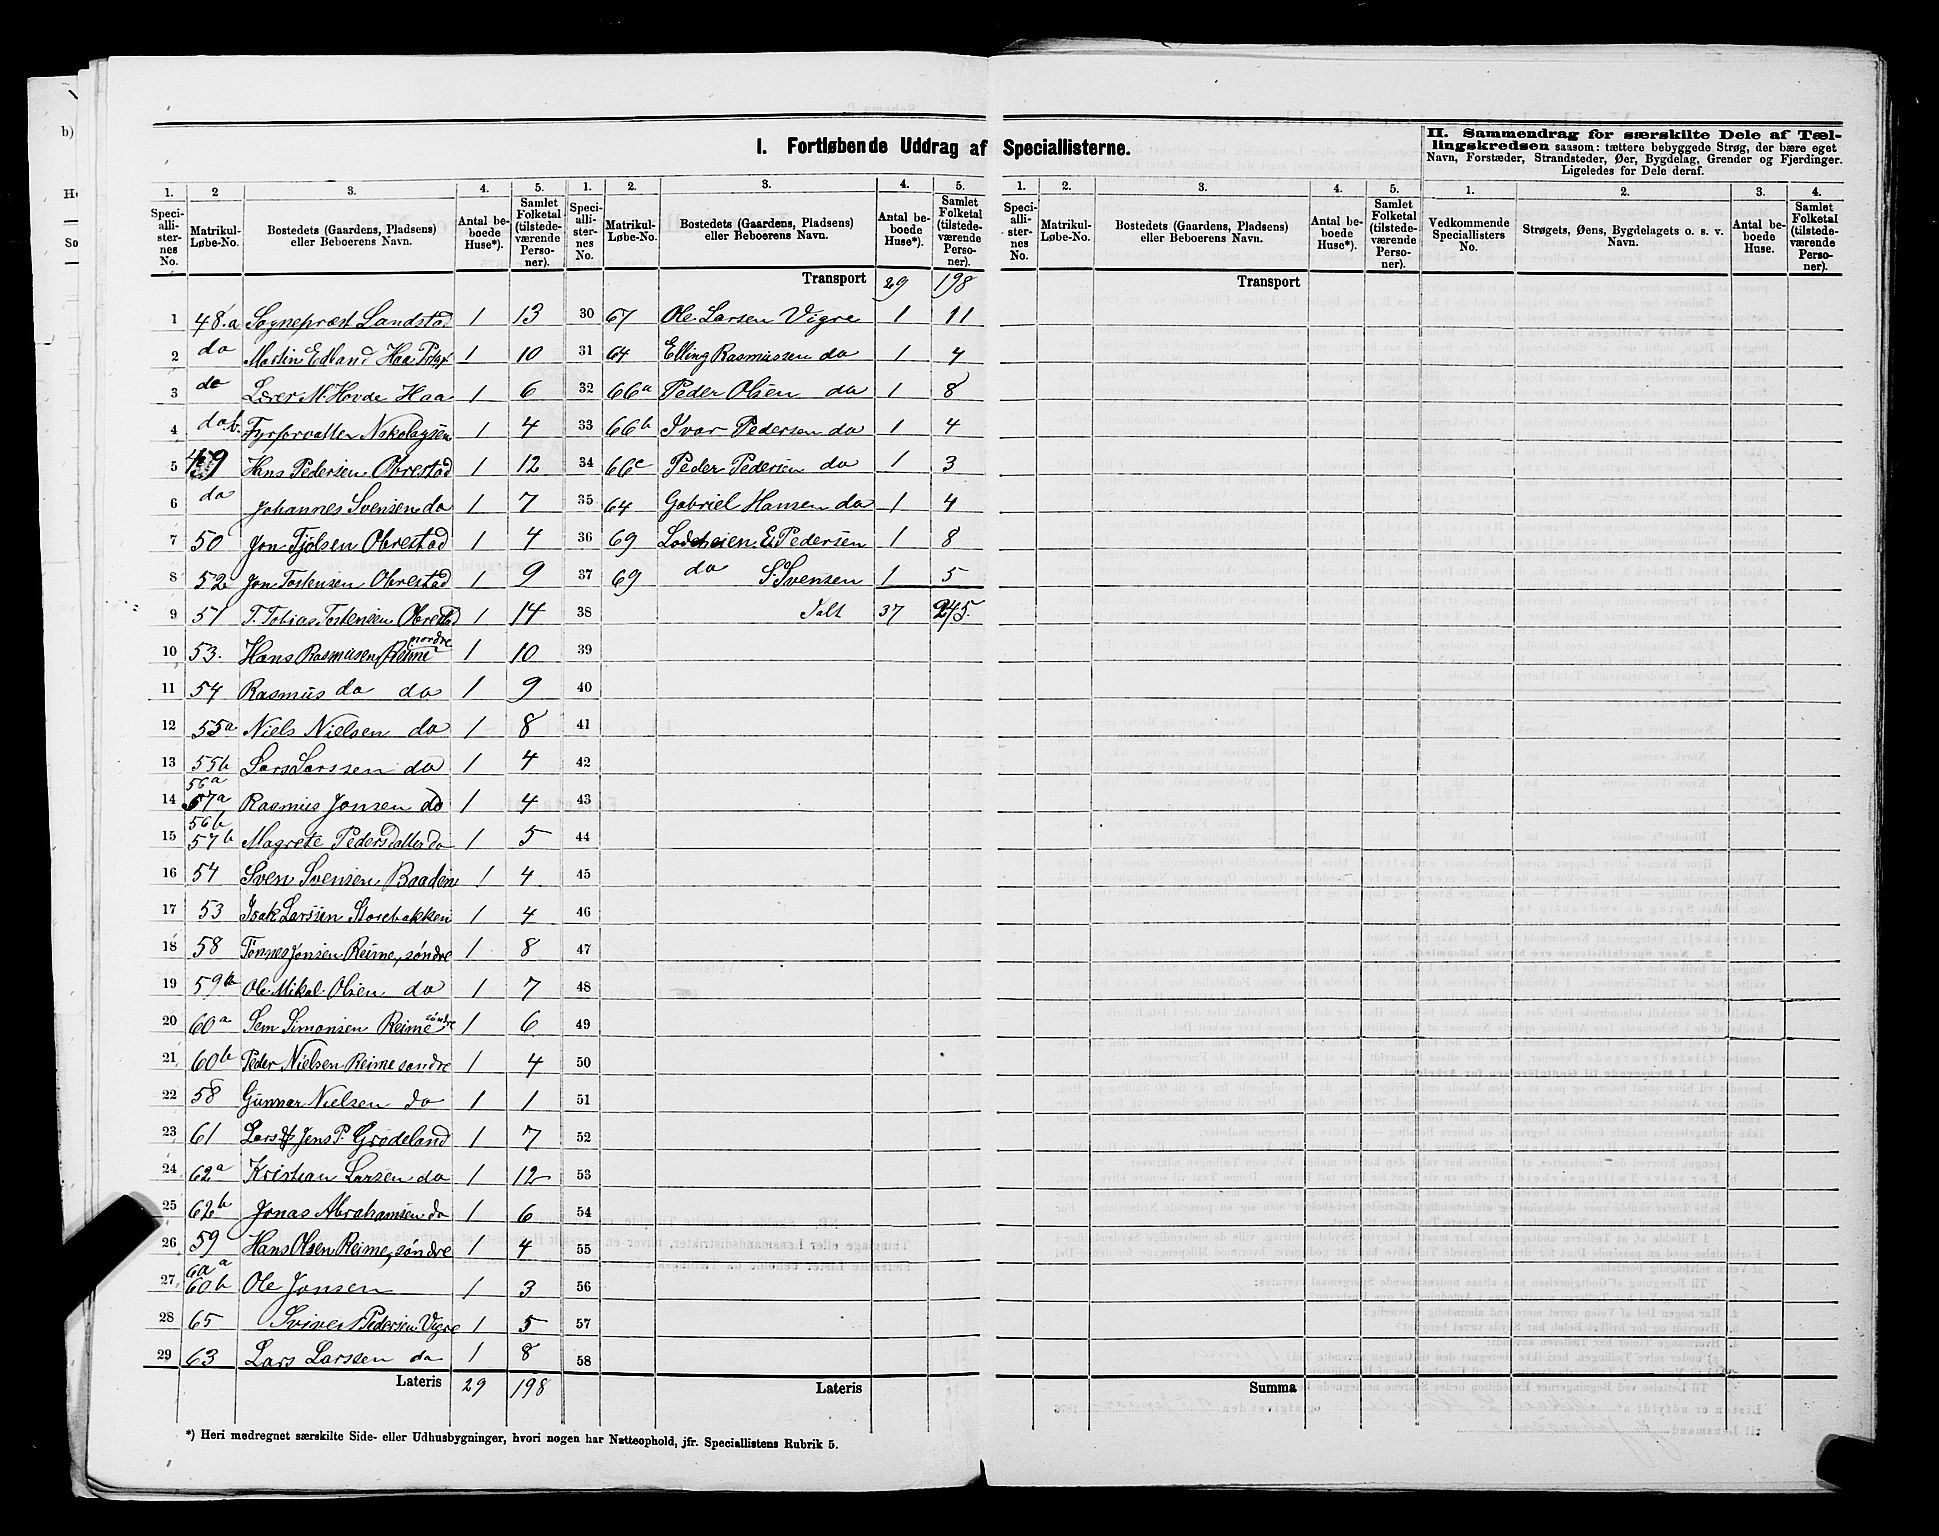 I. Fortløbende Uddrag af Speciallisterne.
II. Sammendrag for særskilte Dele af Tællingskredsen saasom: tættere bebyggede Strøg, der bære eget
Navn, Forstæder, Strandsteder, Øer, Bygdelag, Grender og Fjerdinger.
Ligeledes for Dele deraf.
1. 2 3. 4. 5. 1. 2. 3. 4. 5. 1. 2. 3. 4. 5. 1. 2. 3. 4.
Speciallisternes No. Matrikul-Løbe-No. Bostedets (Gaardens, Pladsens) eller Beboerens Navn. Antal beboede Huse*). Samlet Folketal (tilstedeværende Personer).
Speciallisternes No. Matrikul-Løbe-No. Bostedets (Gaardens, Pladsens) eller Beboerens Navn. Antal beboede Huse*). Samlet Folketal (tilstedeværende Personer).
Speciallisternes No. Matrikul-Løbe-No. Bostedets (Gaardens, Pladsens) eller Beboerens Navn. Antal beboede Huse*). Samlet Folketal (tilstedeværende Personer).
Vedkommende Speciallisters No. Strøgets, Øens, Bygdelagets o. s. v. Navn. Antal beboede Huse. Samlet Folketal (tilstedeværende Personer).
1 48.a Sognepræst Landstad 1 13
2 do Martin Edland Haa 1 10
3 do Lærer M. Hovde Haa 1 6
4 do b. Fyrforvalter Nokolaysen 1 4
5 49 Hans Pedersen Obrestad 1 12
6 do Johannes Svensen do 1 7
7 50 Jon Tjølsen Obrestad 1 4
8 52 Jon Tostensen Obrestad 1 9
9 51 T. Tobias Tostensen Obrestad 1 14
10 53. Hans Rasmusen Reime nordre 1 10
11 54 Rasmus do do 1 9
12 55a Niels Nielsen do 1 8
13 55b Lars Larssen do 1 4
14 56a 57a Rasmus Jonsen do 1 4
15 56b 57b Magrete Pedersdatter do 1 5
16 54 Sven Svensen Baaden 1 4
17 53 Isak Larsen Storebakken 1 4
18 58 Tønnes Jonsen Reime, søndre 1 8
19 59b Ole Mikal Olsen do 1 7
20 60a Sem Simonsen Reime søndre 1 6
21 60b Peder Nielsen Reime søndre 1 4
22 58 Gunnar Nielsen do 1 1
23 61 Lars & Jens P. Grødeland 1 7
24 62a Kristian Larsen do 1 12
25 62b Jonas Abrahamsen do 1 6
26 59 Hans Olsen Reime, søndre 1 4
27 60a 60b Ole Jonsen 1 3
28 65 Pedersen Vigre 1 5
29 63 Lars Larssen do 1 8
Lateris 29 198
Transport 29 198
30 67 Ole Larsen Vigre 1 11
31 64 Elling Rasmussen do 1 4
32 66a Peder Olsen do 1 8
33 66b Ivar Pedersen do 1 4
34 66c Peder Pedersen do 1 3
35 64 Gabriel Hansen do 1 4
36 69 E. Pedersen 1 8
37 69 do S. Svensen 1 5
38 Ialt 37 245
39
40
41
42
43
44
45
46
47
48
49
50
51
52
53
54
55
56
57
58
Lateris
Transport
Summa
*) Heri medregnet særskilte Side- eller Udhusbygninger, hvori nogen har Natteophold, jfr. Speciallistens Rubrik 5.